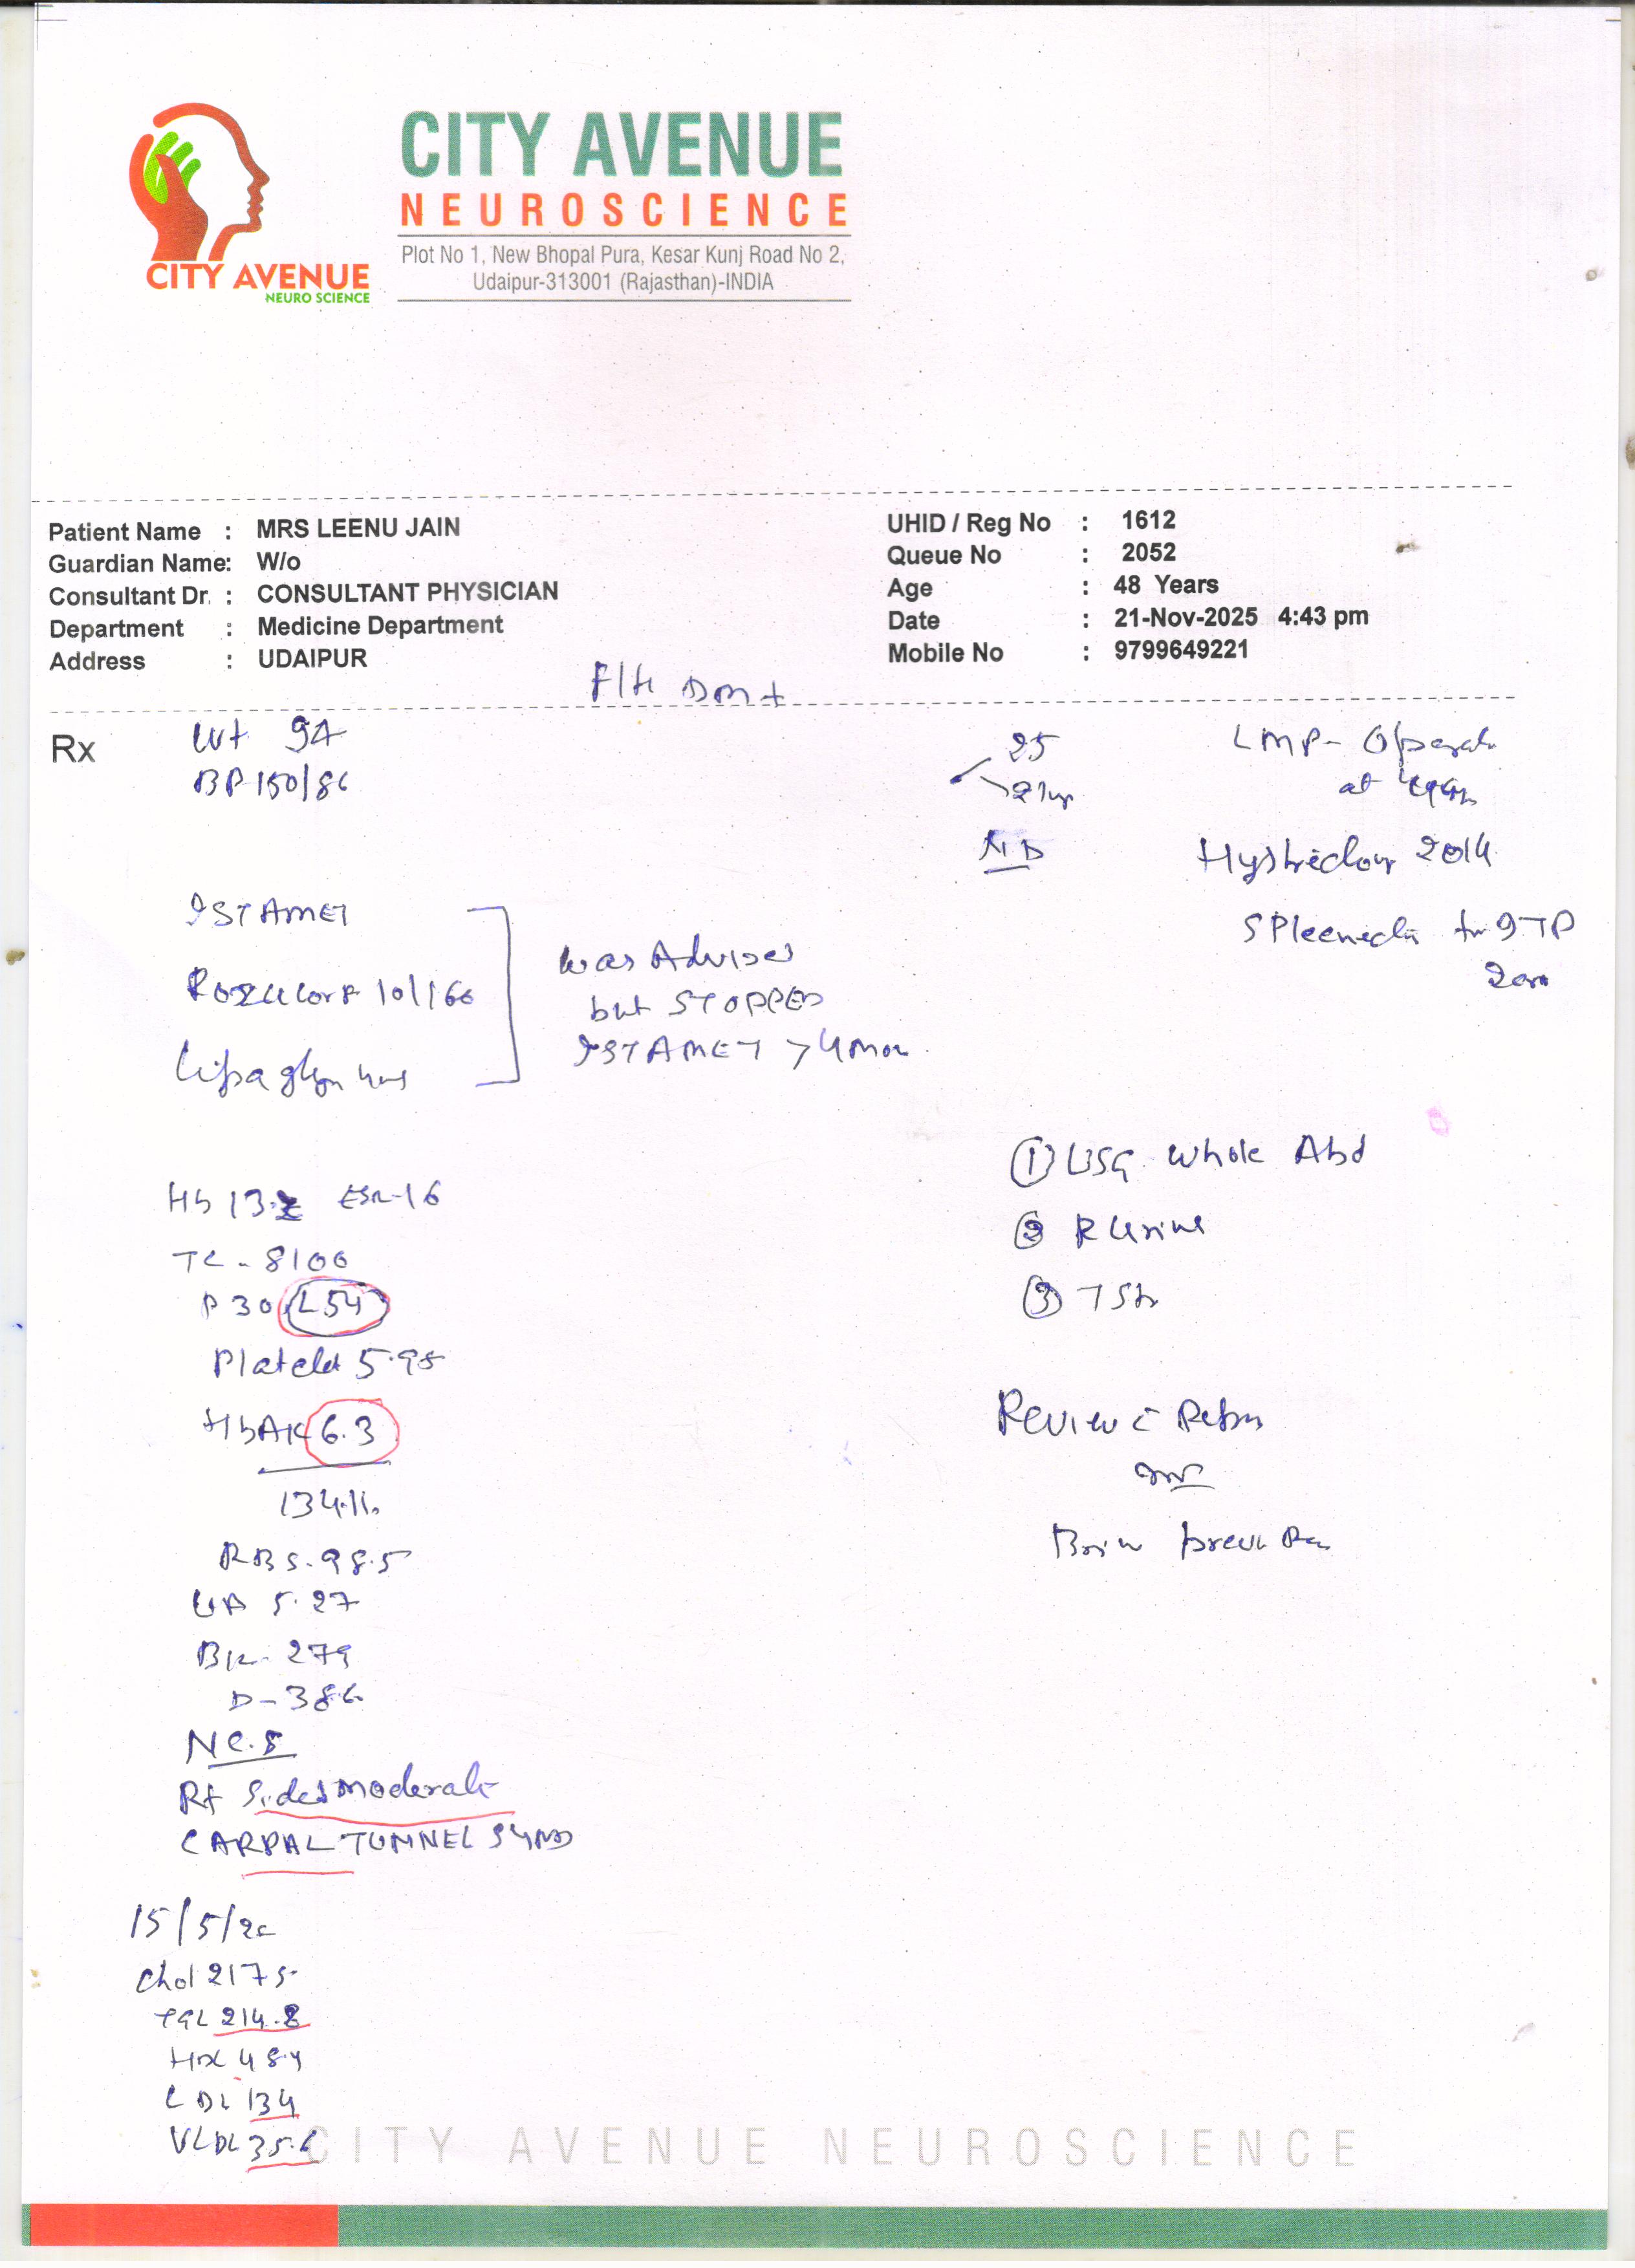 CITY AVENUE
NEUROSCIENCE
Plot No 1, New Bhopal Pura, Kesar Kunj Road No 2,
Udaipur-313001 (Rajasthan)-INDIA
CITY AVENUE
NEURO SCIENCE
Patient Name : MRS LEENU JAIN
Guardian Name: W/o
Consultant Dr. : CONSULTANT PHYSICIAN
Department : Medicine Department
Address : UDAIPUR
UHID / Reg No : 1612
Queue No : 2052
Age : 48 Years
Date : 21-Nov-2025 4:43 pm
Mobile No : 9799649221
F/H DM+
Rx
Wt 94
BP 150/86
25
21yr
ND
LMP-
at
2014
ISTAMET
10/160
was Advised
but STOPPED
ISTAMET > 4 mon
Hb 13. ESR-16
TC - 8100
P 30 L 54
Platelet 5.98
HbA1c 6.3
134.11
RBS-98.5
UA 5.27
B12- 279
D-
N C.S
Rt Sided moderate
CARPAL TUNNEL SYND
15/5/25
Chol 217.5
TGL 214.8
HDL 48.4
LDL 134
VLDL 35.6
① USG Whole Abd
② R Urine
③ TSH
Review c̄
CITY AVENUE NEUROSCIENCE